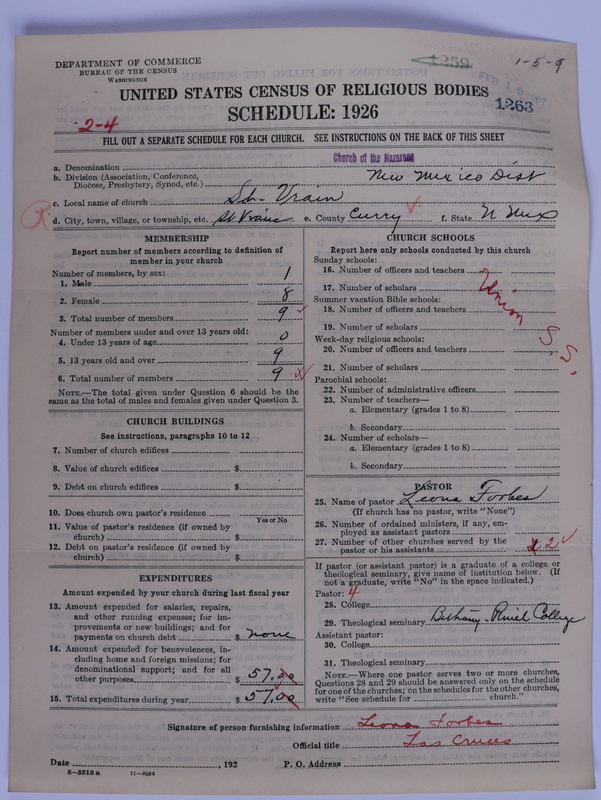 DEPARTMENT OF COMMERCE
BUREAU OF THE CENSUS
WASHINGTON
1259
1-5-9
1263
UNITED STATES CENSUS OF RELIGIOUS BODIES
SCHEDULE: 1926
2-4
FILL OUT A SEPARATE SCHEDULE FOR EACH CHURCH. SEE INSTRUCTIONS ON THE BACK OF THIS SHEET
a. Denomination Church of the Nazarene
b. Division (Association, Conference, Diocese, Presbytery, Synod, etc.) New Mexico Dist
c. Local name of church St. Vrain
d. City, town, village, or township, etc. St Vrain e. County Curry f. State N Mex
MEMBERSHIP
Report number of members according to definition of
member in your church
Number of members, by sex:
1. Male 1
2. Female 8
3. Total number of members 9
Number of members under and over 13 years old:
4. Under 13 years of age 0
5. 13 years old and over 9
6. Total number of members 9
NOTE.—The total given under Question 6 should be
same as the total of males and females given under Question 3.
CHURCH BUILDINGS
See instructions, paragraphs 10 to 12
7. Number of church edifices
8. Value of church edifices $
9. Debt on church edifices $
10. Does church own pastor's residence
Yes or No
11. Value of pastor's residence (if owned by
church) $
12. Debt on pastor's residence (if owned by
church) $
EXPENDITURES
Amount expended by your church during last fiscal year
13. Amount expended for salaries, repairs,
and other running expenses; for im-
provements or new buildings; and for
payments on church debt $ none
14. Amount expended for benevolences, in-
cluding home and foreign missions; for
denominational support; and for all
other purposes $ 57.00
15. Total expenditures during year $ 57.00
CHURCH SCHOOLS
Report here only schools conducted by this church
Sunday schools:
16. Number of officers and teachers
17. Number of scholars
Union S S.
Summer vacation Bible schools:
18. Number of officers and teachers
19. Number of scholars
Week-day religious schools:
20. Number of officers and teachers
21. Number of scholars
Parochial schools:
22. Number of administrative officers
23. Number of teachers—
a. Elementary (grades 1 to 8)
b. Secondary
24. Number of scholars—
a. Elementary (grades 1 to 8)
b. Secondary
PASTOR
25. Name of pastor Leona Forbes
(If church has no pastor, write "None")
26. Number of ordained ministers, if any, em-
ployed as assistant pastors
27. Number of other churches served by the
pastor or his assistants 2
If pastor (or assistant pastor) is a graduate of a college or
theological seminary, give name of institution below. (If
not a graduate, write "No" in the space indicated.)
Pastor: 4
28. College
29. Theological seminary Bethany-Peniel College
Assistant pastor:
30. College
31. Theological seminary
NOTE.—Where one pastor serves two or more churches,
Questions 28 and 29 should be answered only on the schedule
for one of the churches; on the schedules for the other churches,
write "See schedule for church."
Signature of person furnishing information Leona Forbes
Official title Las Cruces
Date , 192 P. O. Address
8—5518 a 11—9054